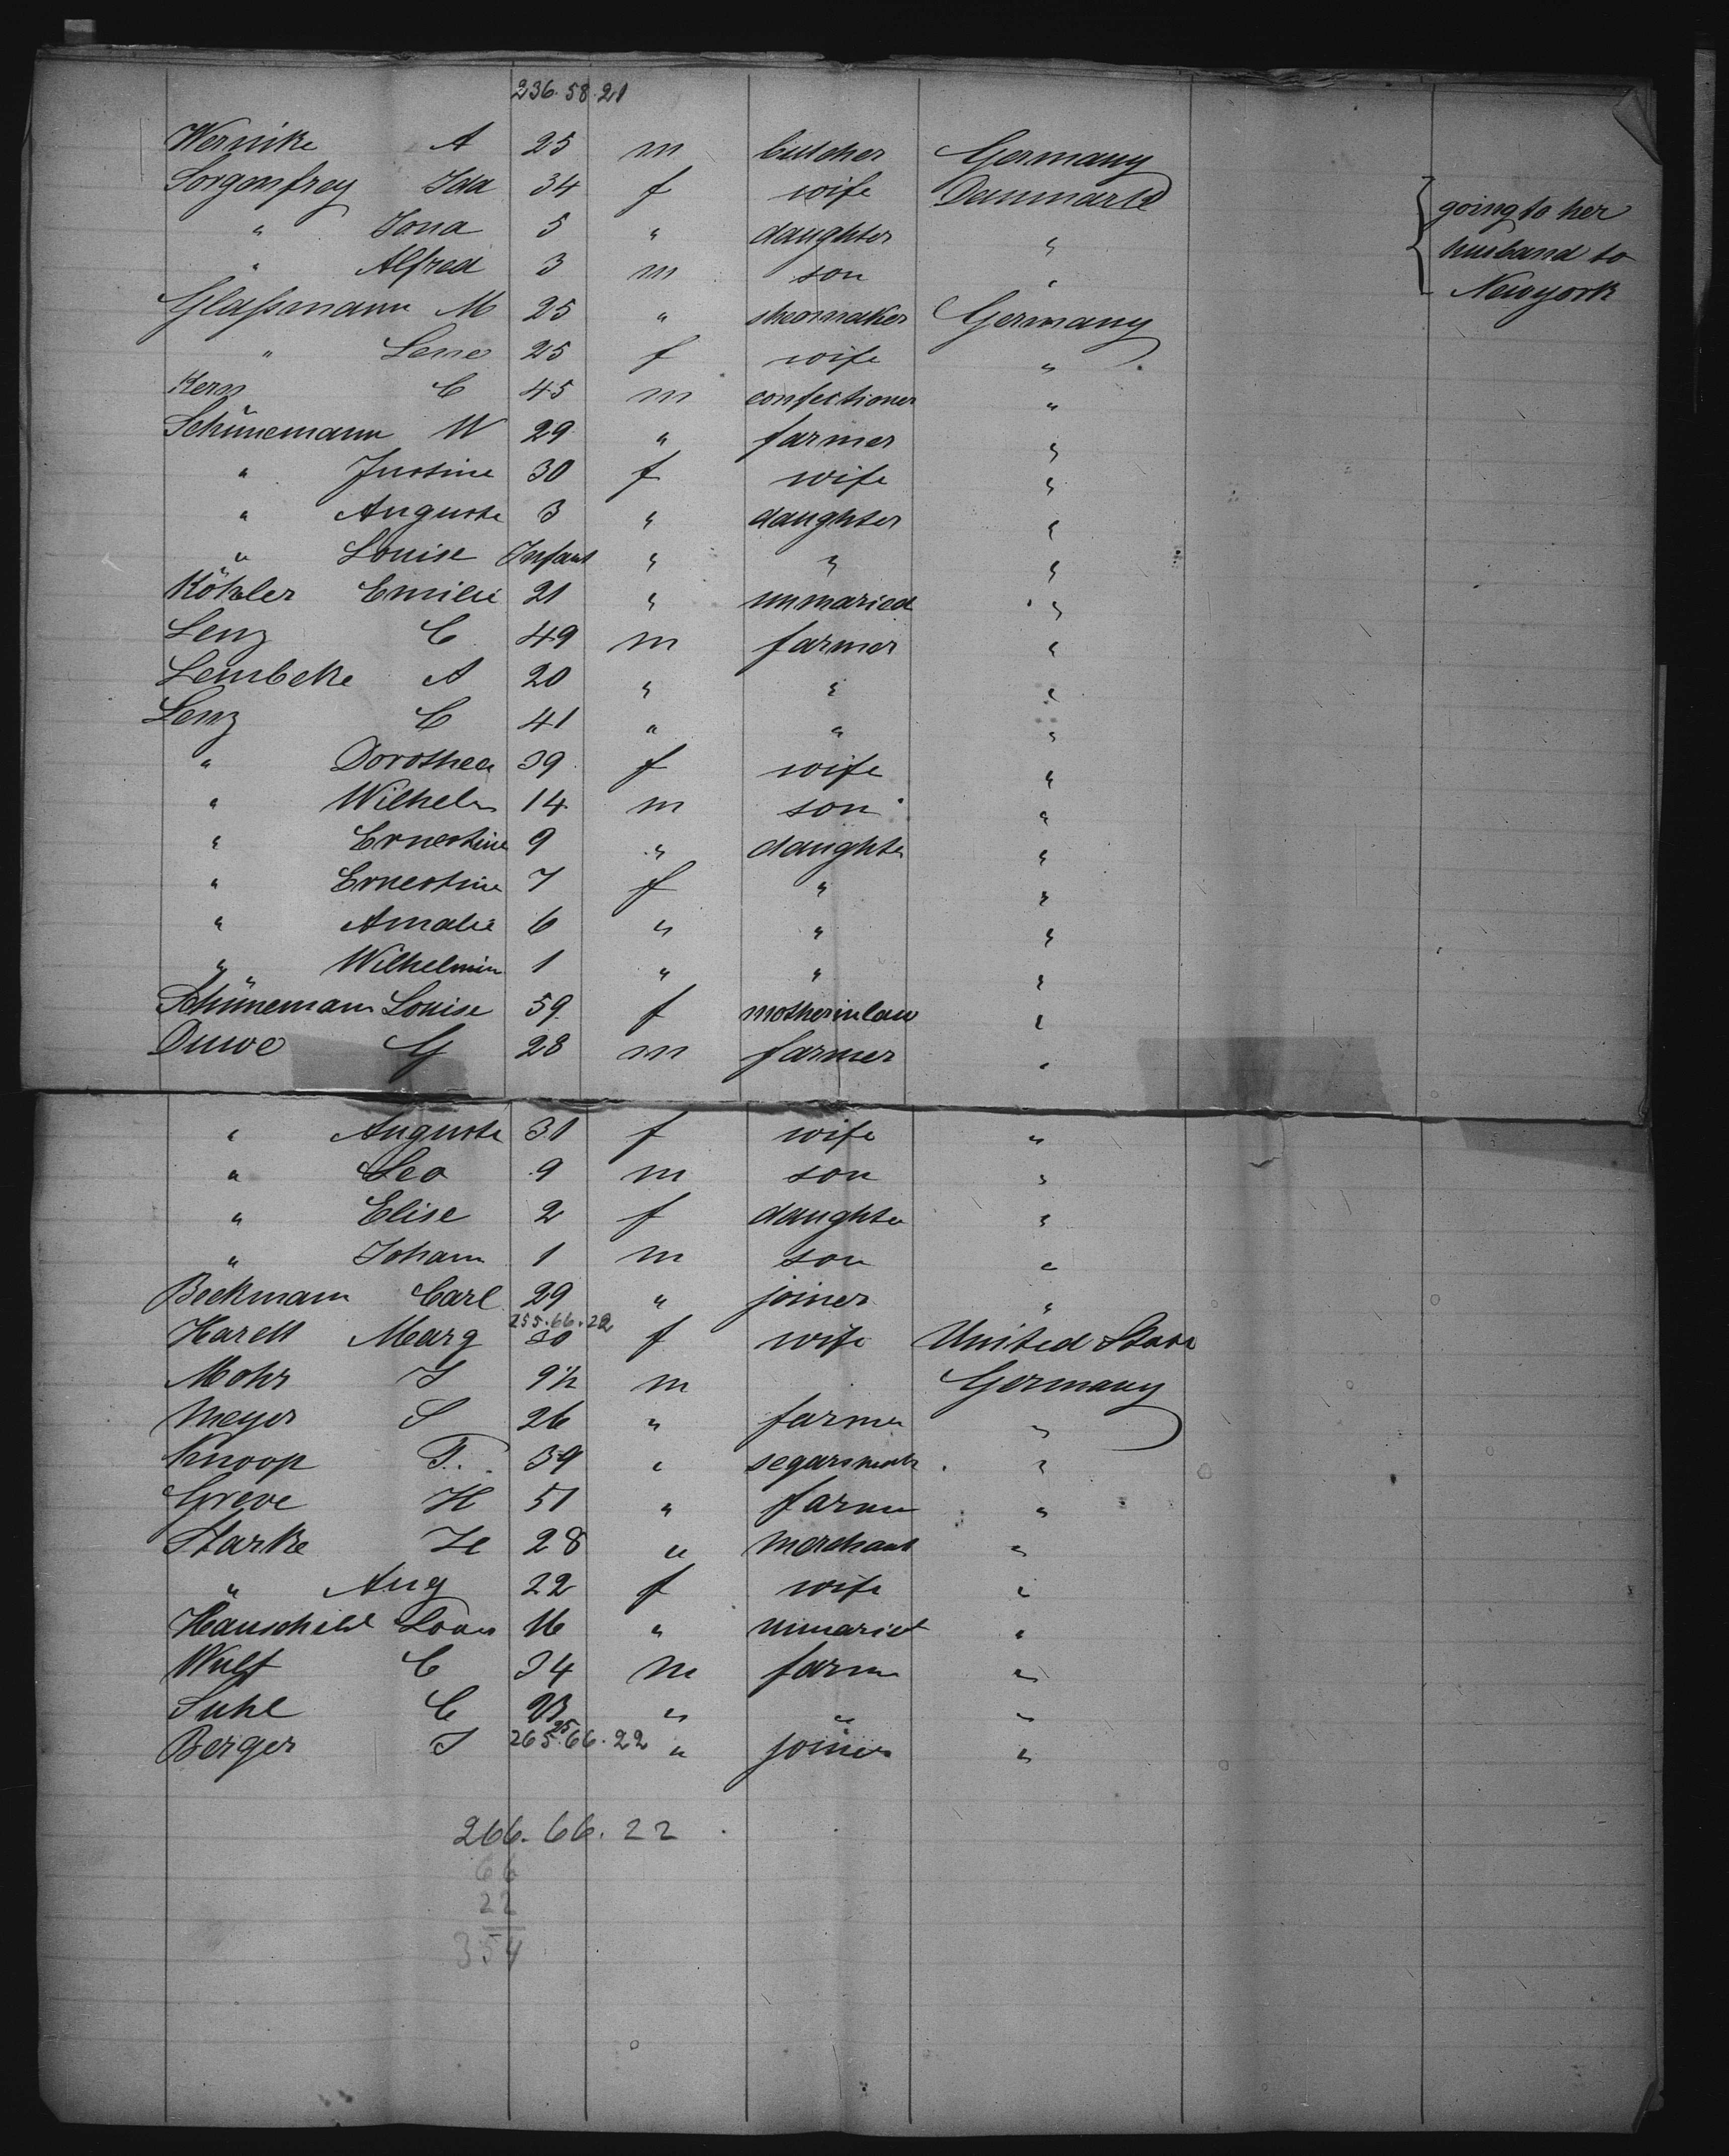 236. 58. 21
Wernike A 25 m butcher Germany
Sorgenfrey Ida 34 f wife Danmark
" Iona 5 " daughter "
" Alfred 3 m son "
going to her
husband to
Newyork
Glaßmann M 25 " shoemaker Germany
" Lene 25 f wife "
Kern C 45 m confectioner "
Schünemann W 29 " farmer "
" Justine 30 f wife "
" Auguste 3 " daughter "
" Louise Infant " " "
Köhler Emilie 21 " unmaried "
Lenz C 49 m farmer "
Lembcke A 20 " " "
Lenz C 41 " " "
" Dorothea 39 f wife "
" Wilhelm 14 m son "
" Ernestine 9 " daughter "
" Ernestine 7 f " "
" Amalie 6 " " "
" Wilhelmin 1 " " "
Schünemann Louise 59 f motherinlaw "
Duwe G 28 m farmer "
" Auguste 31 f wife "
" Leo 9 m son "
" Elise 2 f daughter "
" Johann 1 m son "
Beckmann Carl 29 " joiner "
255. 66. 22
Marg 30 f wife United State
Mohr J 9½ m Germany
Meyer S 26 " farmer "
Knoop F. 39 " "
Greve H 51 " farmer "
Starke H 28 " merchant "
" Aug 22 f wife "
Hauschild 16 " unmaried "
Wulf C 34 m farm "
Suhl C 23 " " "
Berger J 25 " joiner "
265. 66. 22
266. 66. 22
66
22
354